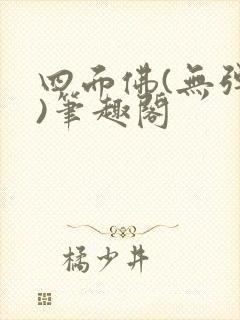 四面佛(無彈
)筆趣閣
橘少井